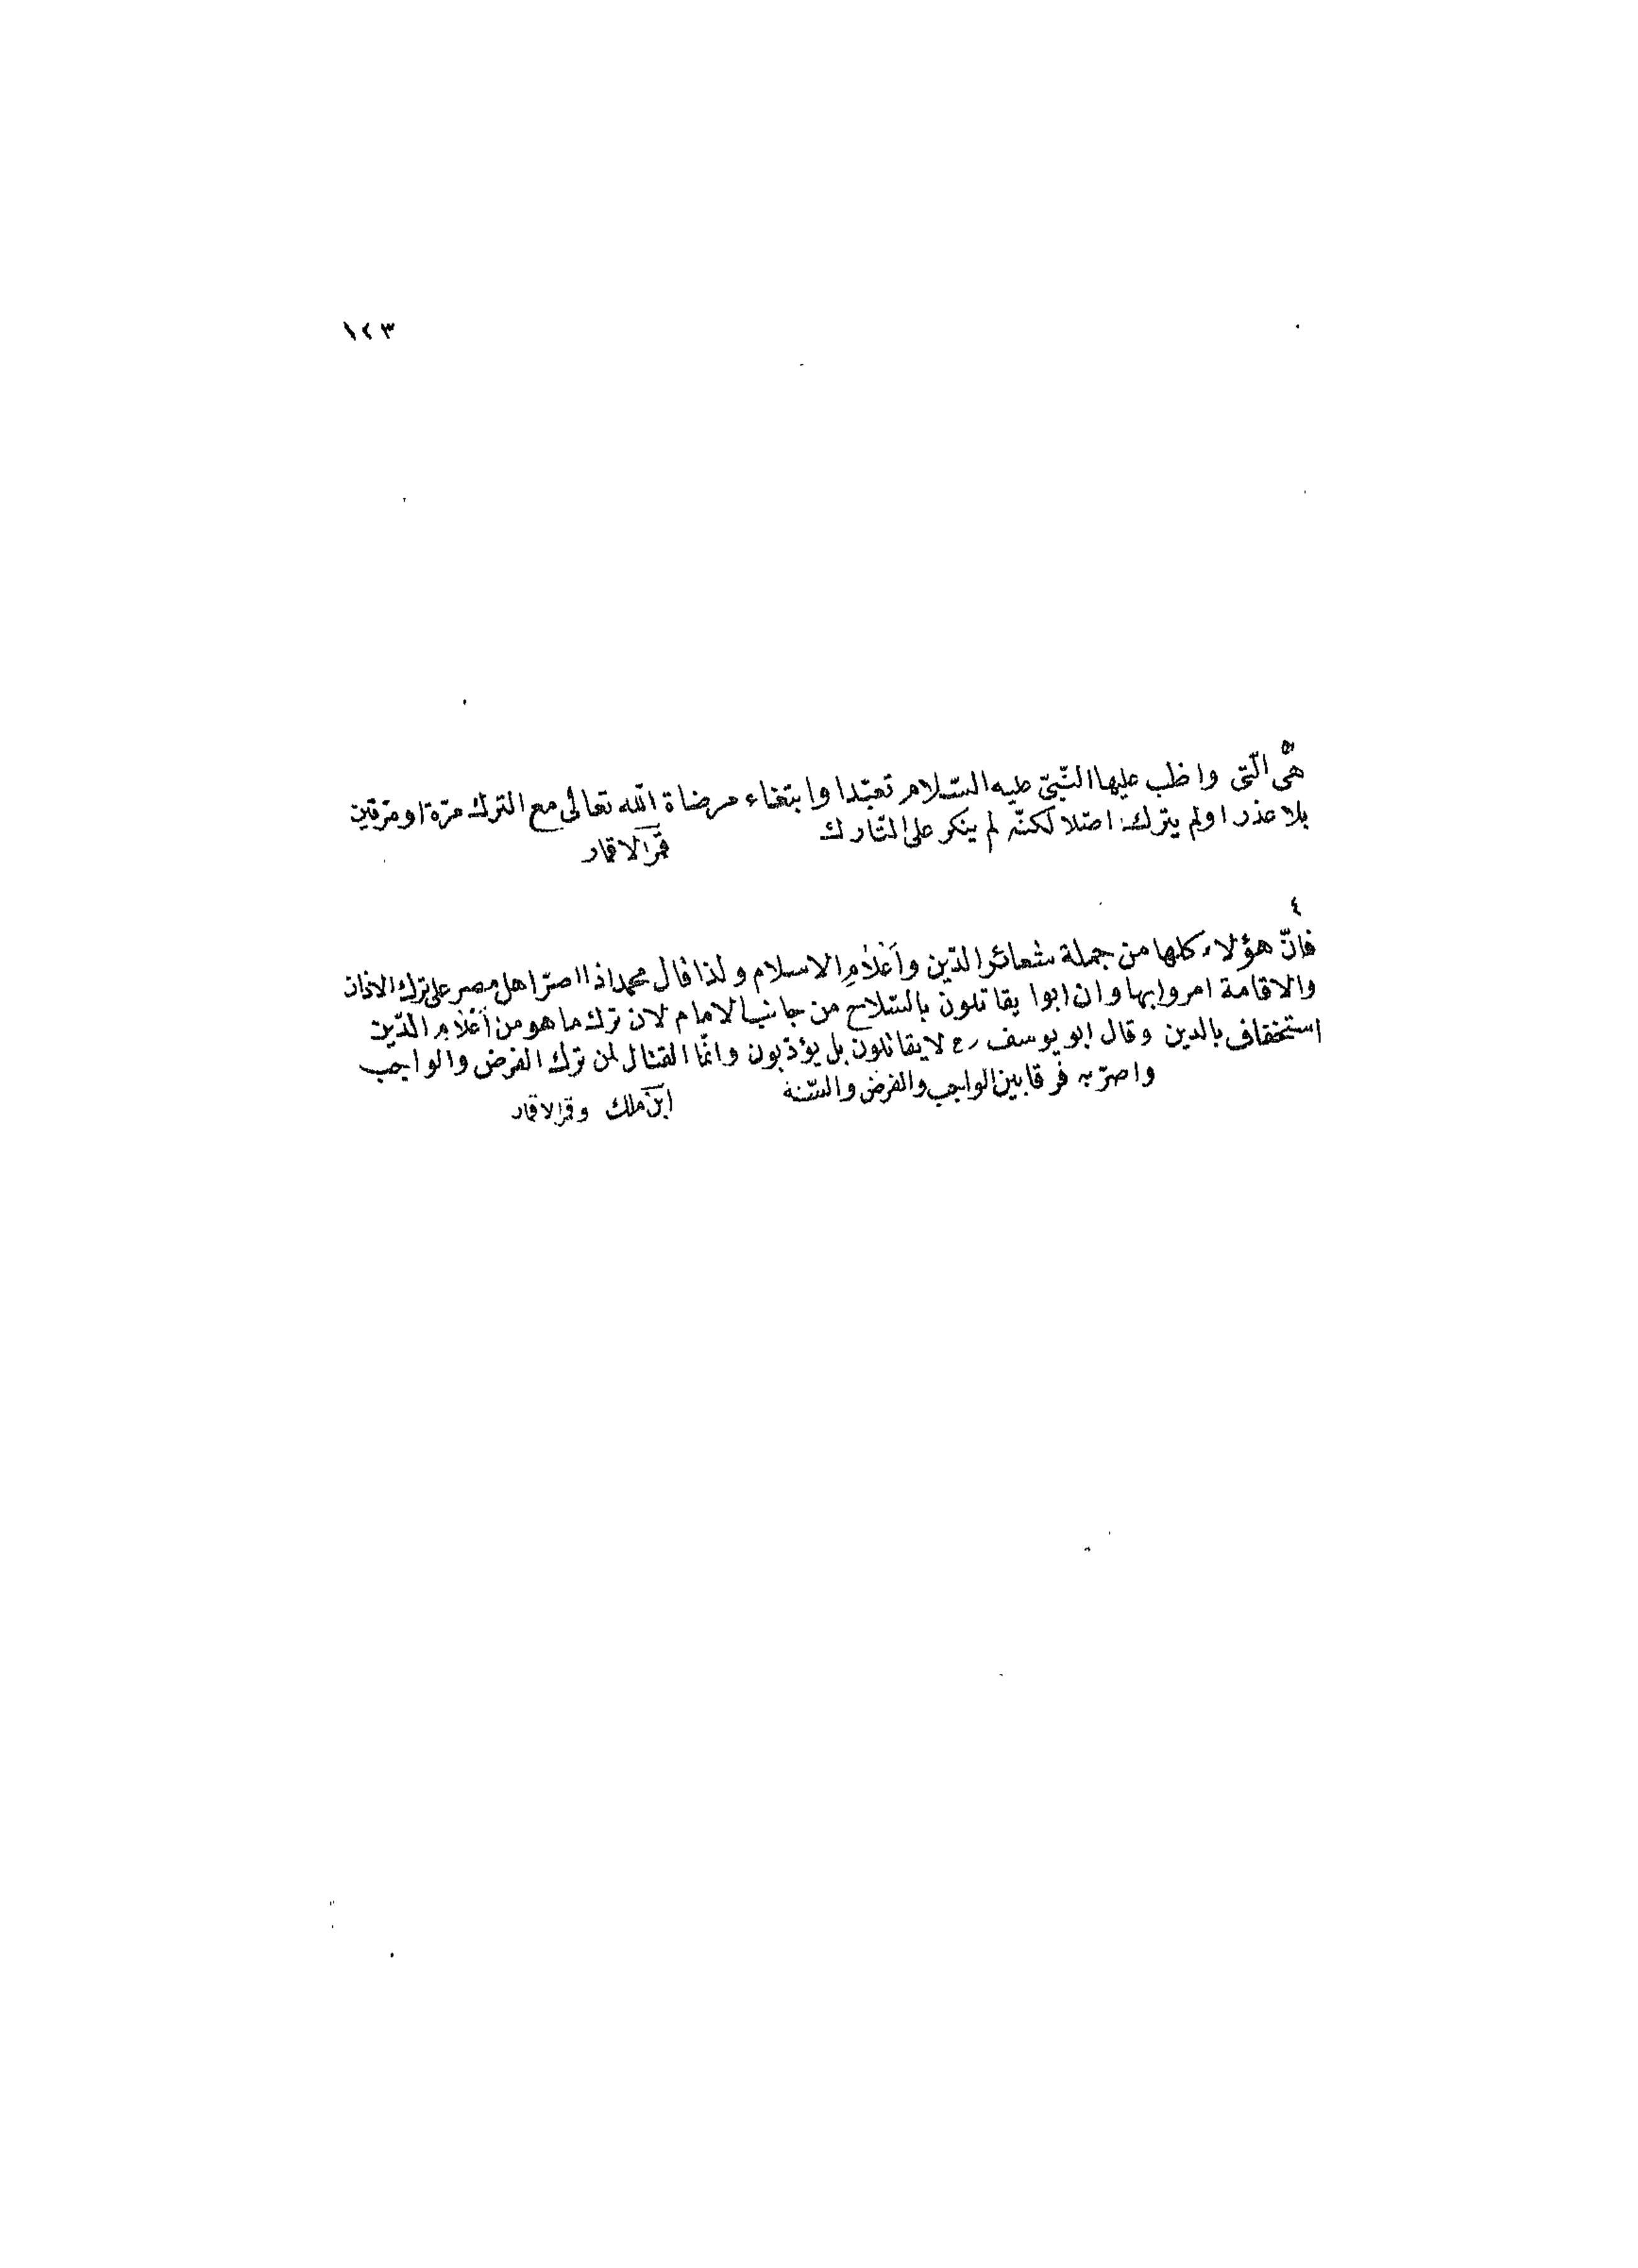 ١٢٣
٣
هى الّتى واظب عليها النّبىّ عليه السّلام تعبّدا وابتغاء مرضاة اللّه تعالى مع الترك مرّة او مرّتين
بلا عذر او لم يترك اصلا لكنّه لم ينكر على التّارك
قمر الاقمار
٤
فانّ هؤلاء كلها من جملة شعائر الدّين وأعْلَامِ الاسلام ولذا قال محمد اذا اصرّ اهل مصر على ترك الاذان
والاقامة امروا بها وان ابوا يقاتلون بالسّلاح من جانب الامام لان ترك ما هو من أعْلَام الدّين
استخفاف بالدين وقال ابو يوسف رح لا يقاتلون بل يؤدّبون وانّما القتال لمن ترك الفرض والواجب
واصرّ به فرقا بين الواجب والفرض والسّنة
ابن ملك وقمر الاقمار